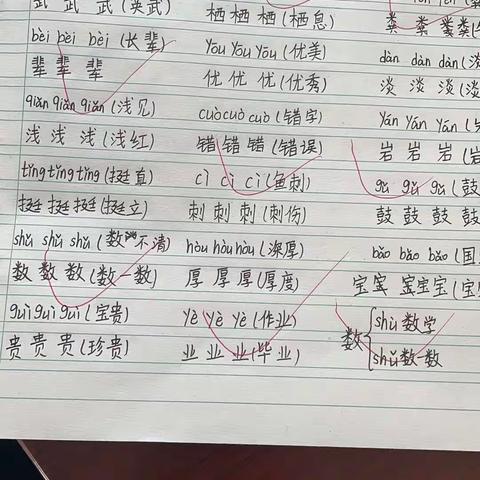 武 武 武 (英武) 栖 栖 栖 (栖息) 粪 粪 粪
bèi bèi bèi (长辈) Yōu Yōu Yōu (优美) dàn dàn dàn
辈 辈 辈 优 优 优 (优秀) 淡 淡 淡
qiǎn qiǎn qiǎn (浅见) cuò cuò cuò (错字) Yán Yán Yán
浅 浅 浅 (浅红) 错 错 错 (错误) 岩 岩 岩
tǐng tǐng tǐng (挺直) cì cì cì (鱼刺) gǔ gǔ gǔ (鼓
挺 挺 挺 (挺立) 刺 刺 刺 (刺伤) 鼓 鼓 鼓 鼓
shǔ shǔ shǔ (数不清) hòu hòu hòu (深厚) bǎo bǎo bǎo (国
数 数 数 (数一数) 厚 厚 厚 (厚度) 宝 宝 宝 宝 宝
guì guì guì (宝贵) yè yè yè (作业) 数 shù 数学
贵 贵 贵 (珍贵) 业 业 业 (毕业) shǔ 数一数